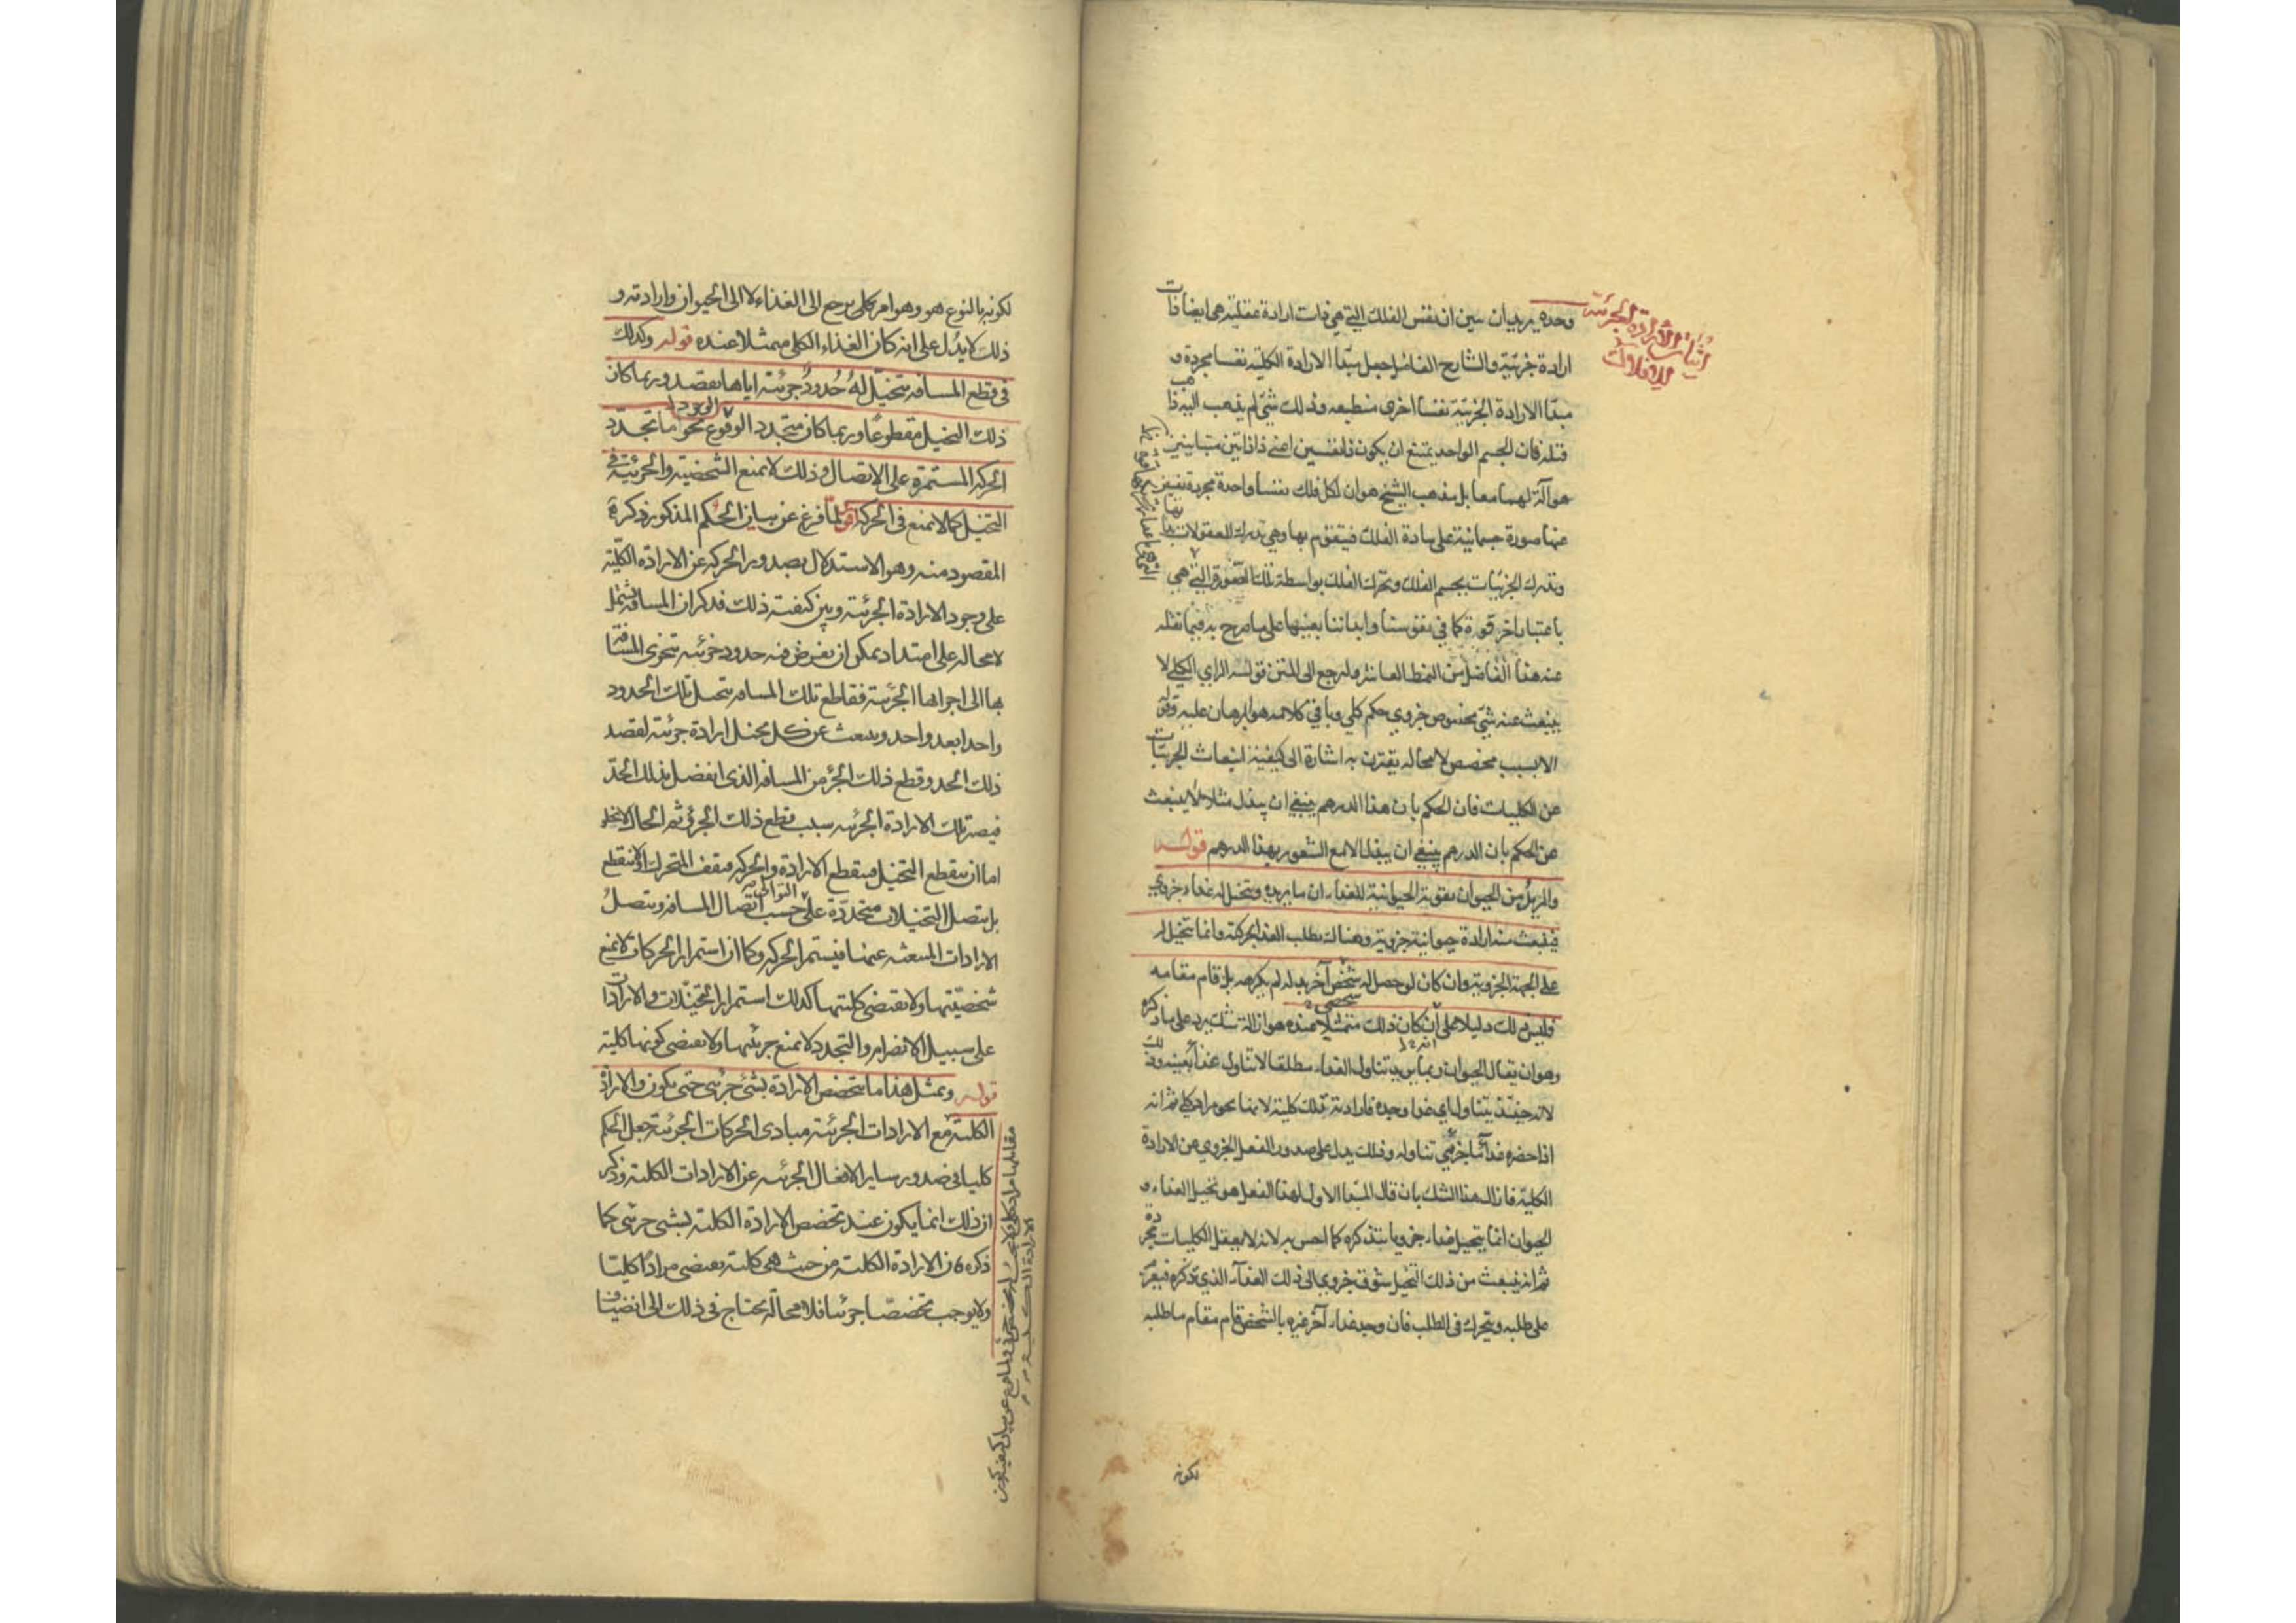 اثبات الارادة الجزئية
للافلاك
وحده يريد ان يبين ان نفس الفلك التي هي ذات ارادة عقلية هي ايضا ذات
ارادة جزئية والشارح الفاضل جعل مبدأ الارادة الكلية نفسا مجردة و
مبدأ الارادة الجزئية نفسا اخرى منطبعة وذلك شي لم يذهب اليه ذاهب
قبله فان الجسم الواحد يمتنع ان يكون ذا نفسين اعني ذا ذاتين متباينتين
هو آلة لهما معا بل مذهب الشيخ هو ان لكل فلك نفسا واحدة مجردة يفيض
عنها صورة جسمانية على مادة الفلك فيتقوم بها وهي تدرك المعقولات
وتدرك الجزئيات بجسم الفلك وتحرك الفلك بواسطة تلك الصورة التي هي
باعتبار آخر قوة كما في نفوسنا وابداننا بعينها على ما صرح به فيما نقله
عنه هذا الفاضل من النمط العاشر ولنرجع الى المتن قوله الراي الكلي لا
ينبعث عنه شي مخصوص جزوي حكم كلي وباقي كلامه هو البرهان عليه وقوله
الا بسبب مخصص لا محالة يقترن به اشارة الى كيفية انبعاث الجزئيات
عن الكليات فان الحكم بان هذا الدرهم ينبغي ان يبذل مثلا لا ينبعث
عن الحكم بان الدرهم ينبغي ان يبذل الا مع الشعور بهذا الدرهم قوله
والمريد من الحيوان بقوته الحيوانية للغذاء ان ما يريده ويتخيل له غذاء جزوي
فينبعث منه ارادة حيوانية جزوية وهناك يطلب الغذا بحركته وانما يتخيل له
على الجهة الجزوية وان كان لو حصل له شخص آخر بدله لم يكرهه بل قام مقامه
فليس ذلك دليلا على ان كان ذلك متمثلا عنده هو ازالة شك يرد على ما ذكره
وهو ان يقال الحيوان ربما يريد تناول الغذاء مطلقا لا تناول غذاء بعينه وذلك
لانه حينئذ يتناول اي غذا وجده فارادته تلك كلية لانها نحو مراد كلي ثم انه
اذا حضره غذاء ما جزئي تناوله وذلك يدل على صدور الفعل الجزوي عن الارادة
الكلية فازال هذا الشك بان قال المبدأ الاول لهذا الفعل هو تخيل الغذاء و
الحيوان انما يتخيل غذاء جزويا يتذكره كما احس به لانه لا يعقل الكليات مجردة
ثم انه ينبعث من ذلك التخيل شوق جزوي الى ذلك الغذاء الذي تذكره فيعزم
على طلبه ويتحرك في الطلب فان وجد غذاء آخر غيره بالشخص قام مقام ما طلبه
لكونه
لكونه بالنوع هو وهو امر كلي يرجع الى الغذاء لا الى الحيوان وارادته و
ذلك لا يدل على انه كان الغذاء الكلي متمثلا عنده قوله وكذلك
في قطع المسافة يتخيل له حدود جزئية اياها يقصد وربما كان
ذلك التخيل مقطوعا وربما كان متجدد الوقوع نحو ما تجدد
الحركة المستمرة على الاتصال وذلك لا يمنع الشخصية والجزئية في
التخيل كما لا يمنع في الحركة اقول لما فرغ عن بيان الحكم المذكور ذكر
المقصود منه وهو الاستدلال بصدور الحركة عن الارادة الكلية
على وجود الارادة الجزئية وبين كيفية ذلك فذكر ان المسافة تشتمل
لا محالة على امتداد يمكن ان يفرض فيه حدود جزئية تتجزى المسافة
بها الى اجزاها الجزئية فقاطع تلك المسافة يتخيل تلك الحدود
واحدا بعد واحد وينبعث عن كل تخيل ارادة جزئية لقصد
ذلك الحد وقطع ذلك الجزء من المسافة الذي انفصل بذلك الحد
فيصير تلك الارادة الجزئية سبب قطع ذلك الجزء ثم الحال لا يخلو
اما ان ينقطع التخيل فينقطع الارادة والحركة فيقف المتحرك او لا ينقطع
بل يتصل التخيلات متجددة على حسب اتصال المسافة ويتصل
الارادات المنبعثة عنها فيستمر الحركة وكما ان استمرار الحركات لا يمنع
شخصيتها ولا يقتضي كليتها كذلك استمرار التخيلات والارادات
على سبيل الانصرام والتجدد لا يمنع جزئيتها ولا يقتضي كونها كلية
قوله وبمثل هذا ما يتخصص الارادة بشئ جزئي حتى يكون والارادة
الكلية مع الارادات الجزئية مبادى الحركات الجزئية جعل الحكم
كليا في صدور ساير الافعال الجزئية عن الارادات الكلية وذكر
ان ذلك انما يكون عند تخصص الارادة الكلية بشئ جزئي كما
ذكره فان الارادة الكلية من حيث هي كلية يقتضي مرادا كليا
ولا يوجب تخصصا جزئيا فلا محالة يحتاج في ذلك الى انضياف
مقابلها مراد كلي ولا يجب له تخصص جزئي ولما فرغ عن بيان كيفية
الارادة الكلية